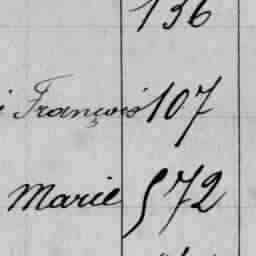 136
François 107
Marie 572